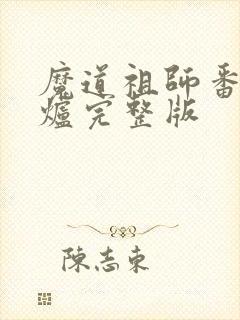 魔道祖師番
爐完整版
陳志東